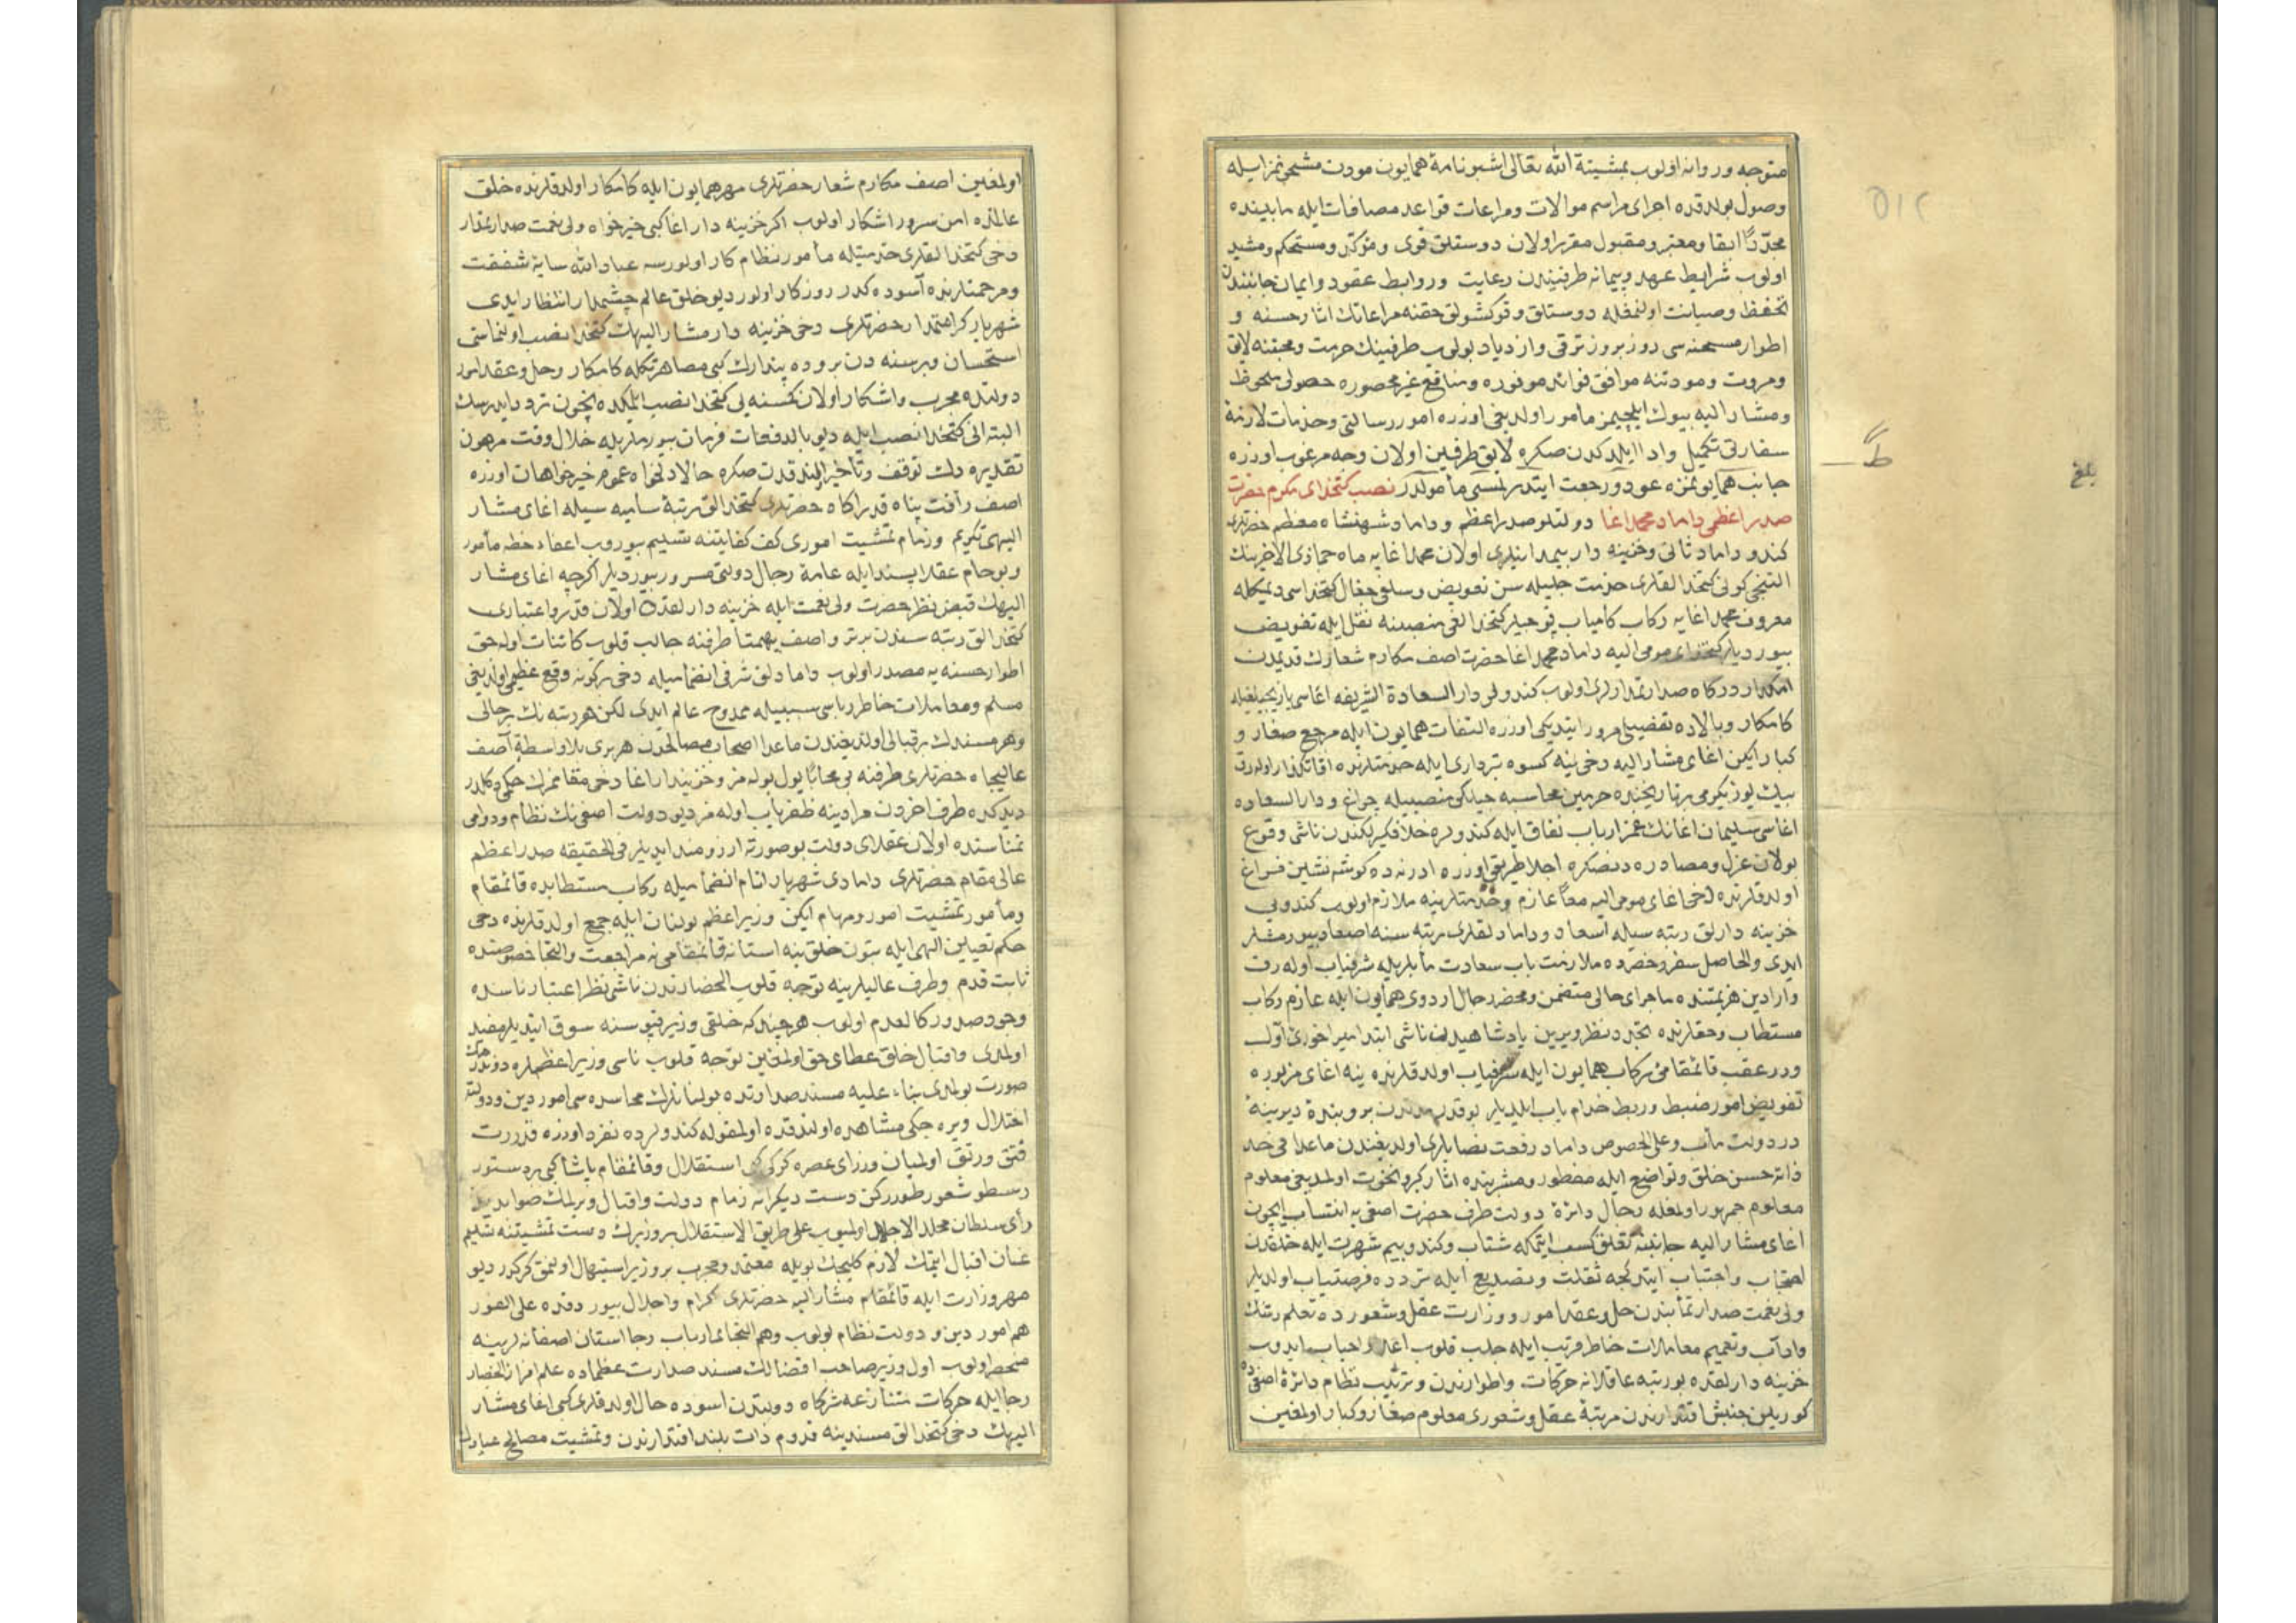 متوجه وروانه اولوب بمشيئة الله تعالى اشبو نامهٔ همايون مودت مشحونمز ايله
وصول بولدقده اجراى مراسم موالات ومراعات قواعد مصافات ايله مابينده
مجدّداً ابقا ومعتبر ومقبول مقرر اولان دوستلق قوى ومؤكد ومستحكم ومشيد
اولوب شرايط عهد وپيمانه طرفيندن رعايت وروابط عقود وايمان جانبيندن
تحفظ وصيانت اولنمغله دوستلق وقوكشولق حقنه مراعاتك اثار حسنه و
اطوار مستحسنه سى روز بروز ترقى وازدياد بولوب طرفينك حرمت ومحبتنه لايق
ومروت ومودتنه موافق فوائد موفوره ومنافع غير محصوره حصولى ملحوظ
ومشار اليه بيوك ايلچيمز مأمور اولديغى اوزره امور رسالتى وخدمات لازمهٔ
سفارتى تكميل وادا ايلدكدن صكره لايق طرفين اولان وجه مرغوب اوزره
جانب همايونمزه عود ورجعت ايتدرلمسى مأمولدر نصب كتخداى مكرم حضرت
صدر اعظمى داماد محمد اغا دولتلو صدر اعظم وداماد شهنشاه معظم حضرتلرى
كندو داماد ثانى وخزينه دار بيمدانيلرى اولان محمد اغايه ماه جمازى الاخرينك
التنجى كونى كتخدالقلرى خدمت جليله سن تفويض وسلفى جغال كتخداسى ديمكله
معروف محمد اغايه ركاب كامياب قوجيلر كتخدالغى منصبنه نقل ايله تفويض
بيورديلر كتخداى مومى اليه داماد محمد اغا حضرت اصف مكارم شعارك قديمدن
امكدار دركاه صدارتمدارلرى اولوب كندولر دار السعادة الشريفه اغاسى يازيجيلغيله
كامكار وبالاده تفصيلى مرور ايتديكى اوزره التفات همايون ايله مرجع صغار و
كبار ايكن اغاى مشار اليه دخى ينه كسوه بردارى ايله خدمتلرنده اوقاتكذار اولوب
بيك يوز يكرمى تاريخنده حرمين محاسبه جيلكى منصبيله چراغ ودار السعاده
اغاسى سليمان اغانك غمز ارباب نفاق ايله كندولره خلاف كيرلكندن ناشى وقوع
بولان عزل ومصادره دنصكره اجلا طريقى اوزره ادرنه ده كوشه نشين فراغ
اولدقلرنده دخى اغاى مومى اليه معاً عازم وخدمتلرينه ملازم اولوب كندويى
خزينه دارلق رتبه سيله اسعاد وداماد لقلرى مرتبه سنه اصعاد بيورمشلر
ايدى والحاصل سفر وحضرده ملازمت باب سعادت مأبلريله شرفياب اوله رق
وارادين هزيمتنده ماجراى حالى متضمن ومحضر رجال اردوى همايون ايله عازم ركاب
مستطاب وحقلرنده تجدد نظر ويرين پادشاهيدن ناشى ابتدا ميراخورى اول
ودر عقب قائمقامئ ركاب همايون ايله شرفياب اولدقلرنده ينه اغاى مزبوره
تفويض امور ضبط وربط خدام باب ايلديلر بوقدر مدتدن برو بندهٔ ديرينهٔ
در دولت مأب وعلى الخصوص داماد رفعت نصابلرى اولديغندن ماعدا فى حد
ذاته حسن خلق وتواضع ايله مفطور ومشربنده اثار كبر ونخوت اولمديغى معلوم
معلوم جمهور اولمغله رجال دائرهٔ دولت طرف حضرت اصفى يه انتساب ايچون
اغاى مشار اليه جانبنه تعلق كسب ايتمكه شتاب وكندو بيم شهرت ايله خلقدن
اجتناب واحتساب ايتدكجه ثقلت وتصديع ايله تردده فرصتياب اولديلر
ولى نعمت صدارتمأبندن حل وعقد امور ووزارت عقل وشعورده تعلم رتبك
وآداب وتعميم معاملات خاطر فريب ايله جلب قلوب اعدا واحباب ايدوب
خزينه دار لقده بورتبه عاقلانه حركات واطوارندن وترتيب نظام دائرهٔ اصفى ده
كوريلن جنبش اقتدارندن مرتبهٔ عقل وشعورى معلوم صغار وكبار اولمغين
اولمغين اصف مكارم شعار حضرتلرى مهر همايون ايله كامكار اولدقلرنده خلق
عالمده امن سرور اشكار اولوب اكر خزينه دار اغا كبى خيرخواه ولى نعمت صدارتمدار
دخى كتخدالقلرى خدمتيله مأمور نظام كار اولورسه عباد الله سايهٔ شفقت
ومرحمتلرنده آسوده كدر روزكار اولور ديو خلق عالم چشمدار انتظار ايدى
شهريار كرامتمدار حضرتلرى دخى خزينه دار مشار اليهك كتخدا نصب اولنماسنى
استحسان وبرسنه دن برو ده پندارك كبى مصاهرتكله كامكار وحل وعقد امور
دولتده مجرب واشكار اولان كمسنه يى كتخدا نصب ايلمكده نيچون تردد ايدرسك
البته انى كتخدا نصب ايله ديو بالدفعات فرمان بيورملريله خلال وقت مرهون
تقديره دك توقف وتأخير ايلندقدن صكره حالا دلخواه عموم خيرخواهان اوزره
اصف رأفت پناه قدر اكاه حضرتلرى كتخدالق مرتبهٔ ساميه سيله اغاى مشار
اليهى تكريم وزمام تمشيت امورى كف كفايتنه تسليم بيوروب اعقاد خطه مأمور
وبو حام عقلا پسند ايله عامهٔ رجال دولتى مسرور بيورديلر اكرچه اغاى مشار
اليهك قبض نظر حضرت ولى نعمت ايله خزينه دار لقده اولان قدر واعتبارى
كتخدالق رتبه سندن برتر واصف بيهمتا طرفنه جالب قلوب كائنات اوله جق
اطوار حسنه يه مصدر اولوب دامادلق شرفى انضماميله دخى بركونه وقع عظيمى اولديغى
مسلم ومعاملات خاطر رباسى سببيله ممدوح عالم ايدى لكن هر رتبه نك برحالى
وهر مسندك برقبالى اولديغندن ماعدا اصحاب مصالحدن هر برى بلا واسطهٔ آصف
عاليجاه حضرتلرى طرفنه بى محابا يول بوله مز وخزينه دار اغا دخى مقامنك حكمى دكلدر
ديدكده طرف اخردن مرادينه ظفرياب اوله مز ديو دولت اصفى نك نظام ودوامى
تمناسنده اولان عقلاى دولت بوصورته ارزومند ايديلر فى الحقيقه صدر اعظم
عالى مقام حضرتلرى دامادى شهريار انام انضماميله ركاب مستطابده قائمقام
ومأمور تمشيت امور ومهام ايكن وزير اعظم بولنان ايله جمع اولدقلرنده دخى
حكم تعيين الهى ايله ستون خلق ينه استانهٔ قائمقامى يه مراجعت والتجا خصوصنده
ثابت قدم وطرف عاليلرينه توجه قلوب الحضارندن ناشى نظر اعتبار ناسده
وجود صدور كالعدم اولوب هرچند كه خلقى وزير قپوسنه سوق ايتديلر مفيد
اولمدى واقبال خلق عطاى حق اولمغين توجه قلوب ناسى وزير اعظملره دوندرمك
صورت بولمدى بناء عليه مسند صدارتده بولنانلرك محاسده سى امور دين ودولته
اختلال ويره جكى مشاهده اولندقده اولمقوله كندولرده تفرد اوزره قدرت
فتق ورتق اولميان وزراى عصره كركى كبى استقلال وقائمقام پاشا كبى بر دستور
رسطو شعور طورركن دست ديكرانه زمام دولت واقبال ويرلمك صوابديد
رأى سلطان مخلد الاجلال اولميوب على طريق الاستقلال بروزيرك دست تمشيتنه تسليم
عنان اقبال ايتمك لازم كليجك بويله معتمد ومجرب بروزير استيهال اولنمق كركدر ديو
مهر وزارت ايله قائمقام مشار اليه حضرتلرى كرام واجلال بيوردقده على الفور
هم امور دين ودولت نظام بولوب وهم التجاى ارباب رجا استان اصفانه لرينه
منحصر اولوب اول وزير صاحب افضالك مسند صدارت عظماده علم افراز الحضار
رجا ايله حركات متنازعه شركاه دولتدن اسوده حال اولدقلرى كبى اغاى مشار
اليهك دخى كتخدالق مسندينه قدوم ذات بلند اقتدارندن وتمشيت مصالح عبادك